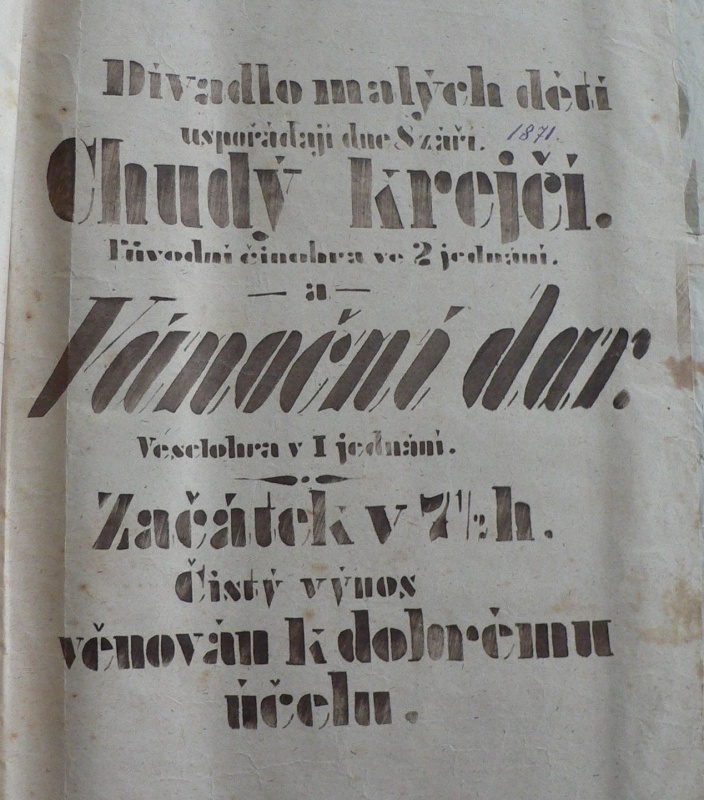 Divadlo malých dětí
uspořádají dne 8 září. 1871.
Chudý krejčí.
Původní činohra ve 2 jednání.
— a —
Vánoční dar.
Veselohra v 1 jednání.
Začátek v 7 1/2 h.
Čistý výnos
věnován k dobrému
účelu.